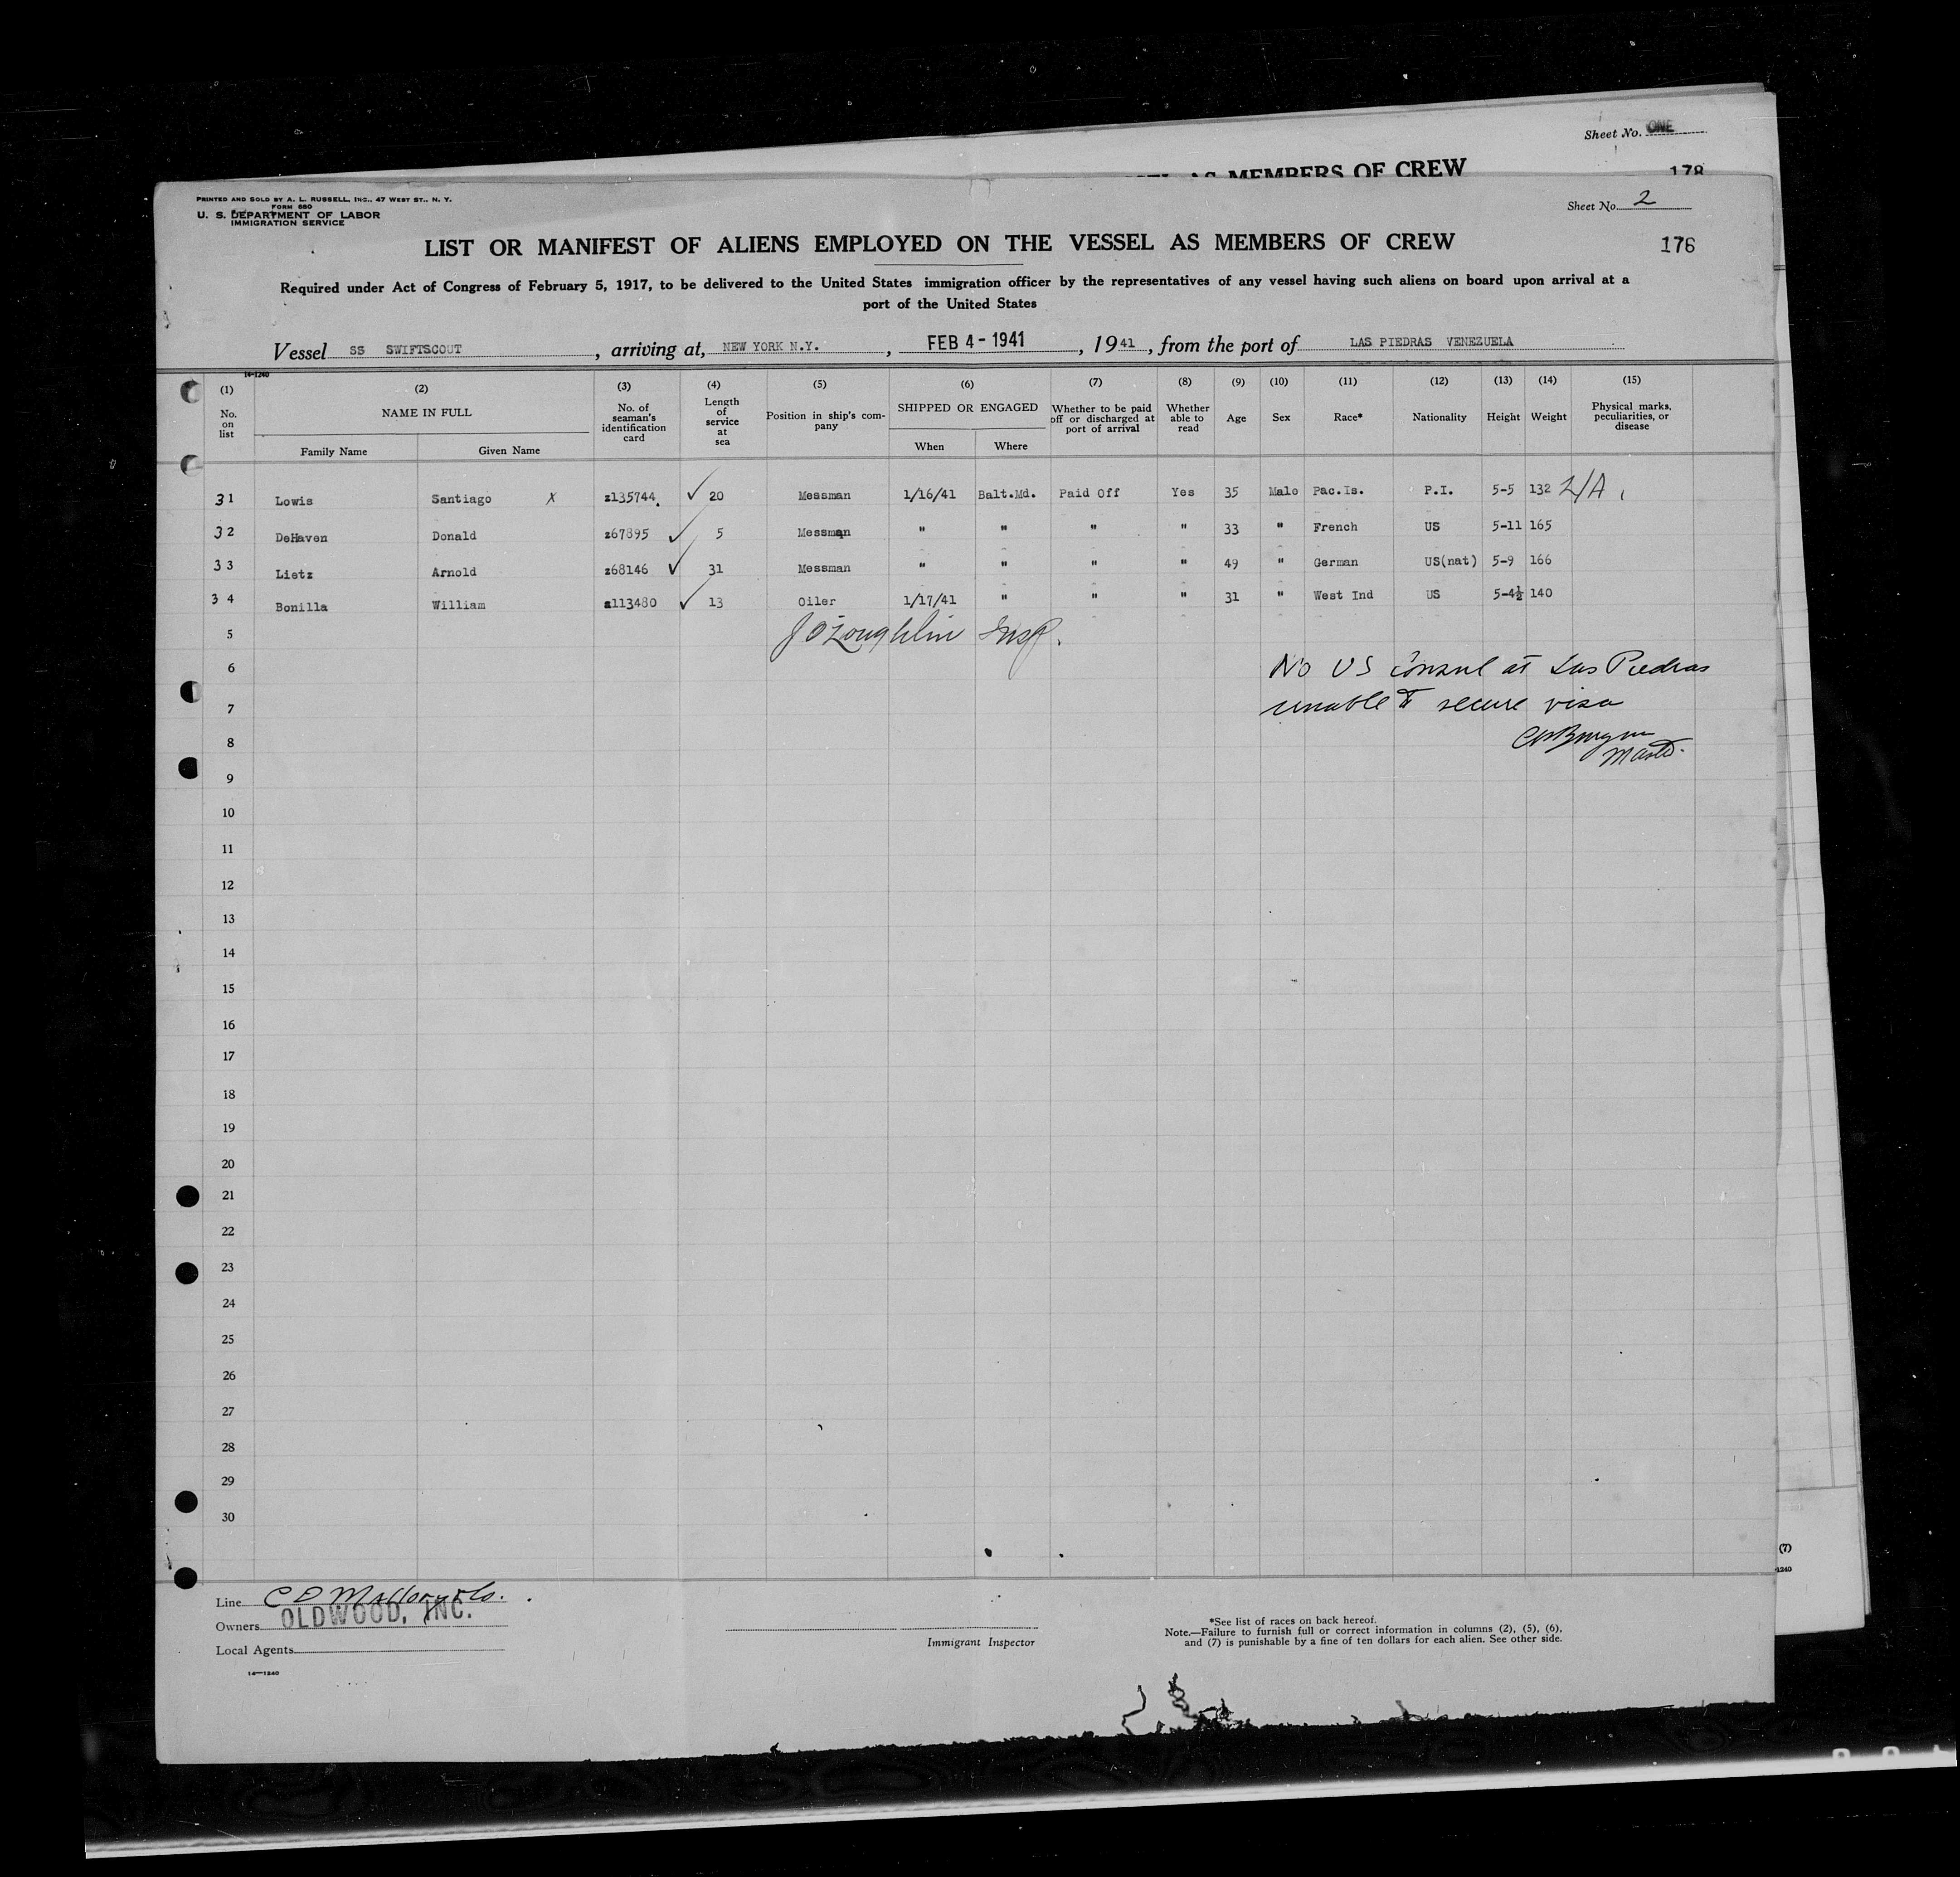 Sheet No. ONE
AS MEMBERS OF CREW
178
PRINTED AND SOLD BY A. L. RUSSELL, INC., 47 WEST ST., N. Y.
FORM 680
U. S. DEPARTMENT OF LABOR
IMMIGRATION SERVICE
Sheet No. 2
LIST OR MANIFEST OF ALIENS EMPLOYED ON THE VESSEL AS MEMBERS OF CREW
176
Required under Act of Congress of February 5, 1917, to be delivered to the United States immigration officer by the representatives of any vessel having such aliens on board upon arrival at a
port of the United States
Vessel SS SWIFTSCOUT, arriving at, NEW YORK N.Y., FEB 4 - 1941, 1941, from the port of LAS PIEDRAS VENEZUELA
14-1240
(1) (2) (3) (4) (5) (6) (7) (8) (9) (10) (11) (12) (13) (14) (15)
No. on list NAME IN FULL No. of seaman's identification card Length of service at sea Position in ship's company SHIPPED OR ENGAGED Whether to be paid off or discharged at port of arrival Whether able to read Age Sex Race* Nationality Height Weight Physical marks, peculiarities, or disease
Family Name Given Name When Where
31 Lowis Santiago X z135744. ✓ 20 Messman 1/16/41 Balt.Md. Paid Off Yes 35 Male Pac.Is. P.I. 5-5 132 L/A
32 DeHaven Donald z67895 ✓ 5 Messman " " " " 33 " French US 5-11 165
33 Lietz Arnold z68146 ✓ 31 Messman " " " " 49 " German US(nat) 5-9 166
34 Bonilla William z113480 ✓ 13 Oiler 1/17/41 " " " 31 " West Ind US 5-4½ 140
5 J O'Loughlin Insp.
6 No US Consul at Las Piedras
7 unable to secure visa
8
Master.
9
10
11
12
13
14
15
16
17
18
19
20
21
22
23
24
25
26
27
28
29
30
(7)
1240
Line C D Mallory & Co.
Owners OLDWOOD, INC.
Local Agents
14-1240
Immigrant Inspector
*See list of races on back hereof.
Note.—Failure to furnish full or correct information in columns (2), (5), (6),
and (7) is punishable by a fine of ten dollars for each alien. See other side.